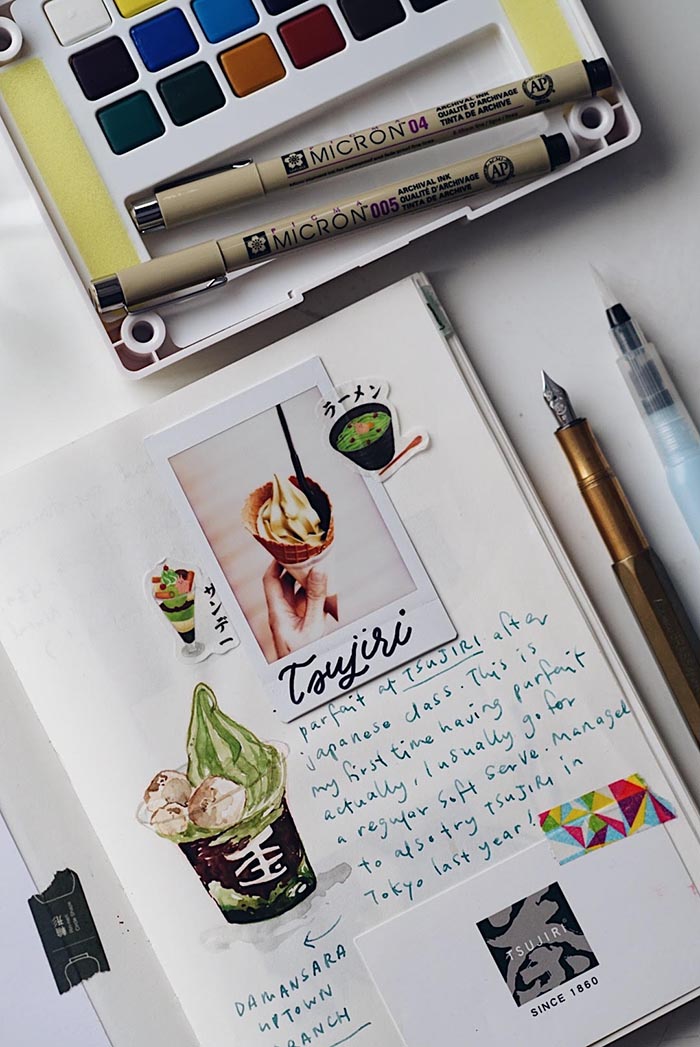 PIGMA™
MICRON 04
ARCHIVAL INK
QUALITÉ D'ARCHIVAGE
TINTA DE ARCHIVE
AP
PIGMA™
MICRON 005
ARCHIVAL INK
QUALITÉ D'ARCHIVAGE
TINTA DE ARCHIVE
AP
ラーメン
Tsujiri
parfait at TSUJIRI after
japanese class. This is
my first time having parfait
actually, I usually go for
a regular soft serve. Managed
to also try TSUJIRI in
Tokyo last year!
DAMANSARA
UPTOWN
BRANCH
TSUJIRI®
SINCE 1860